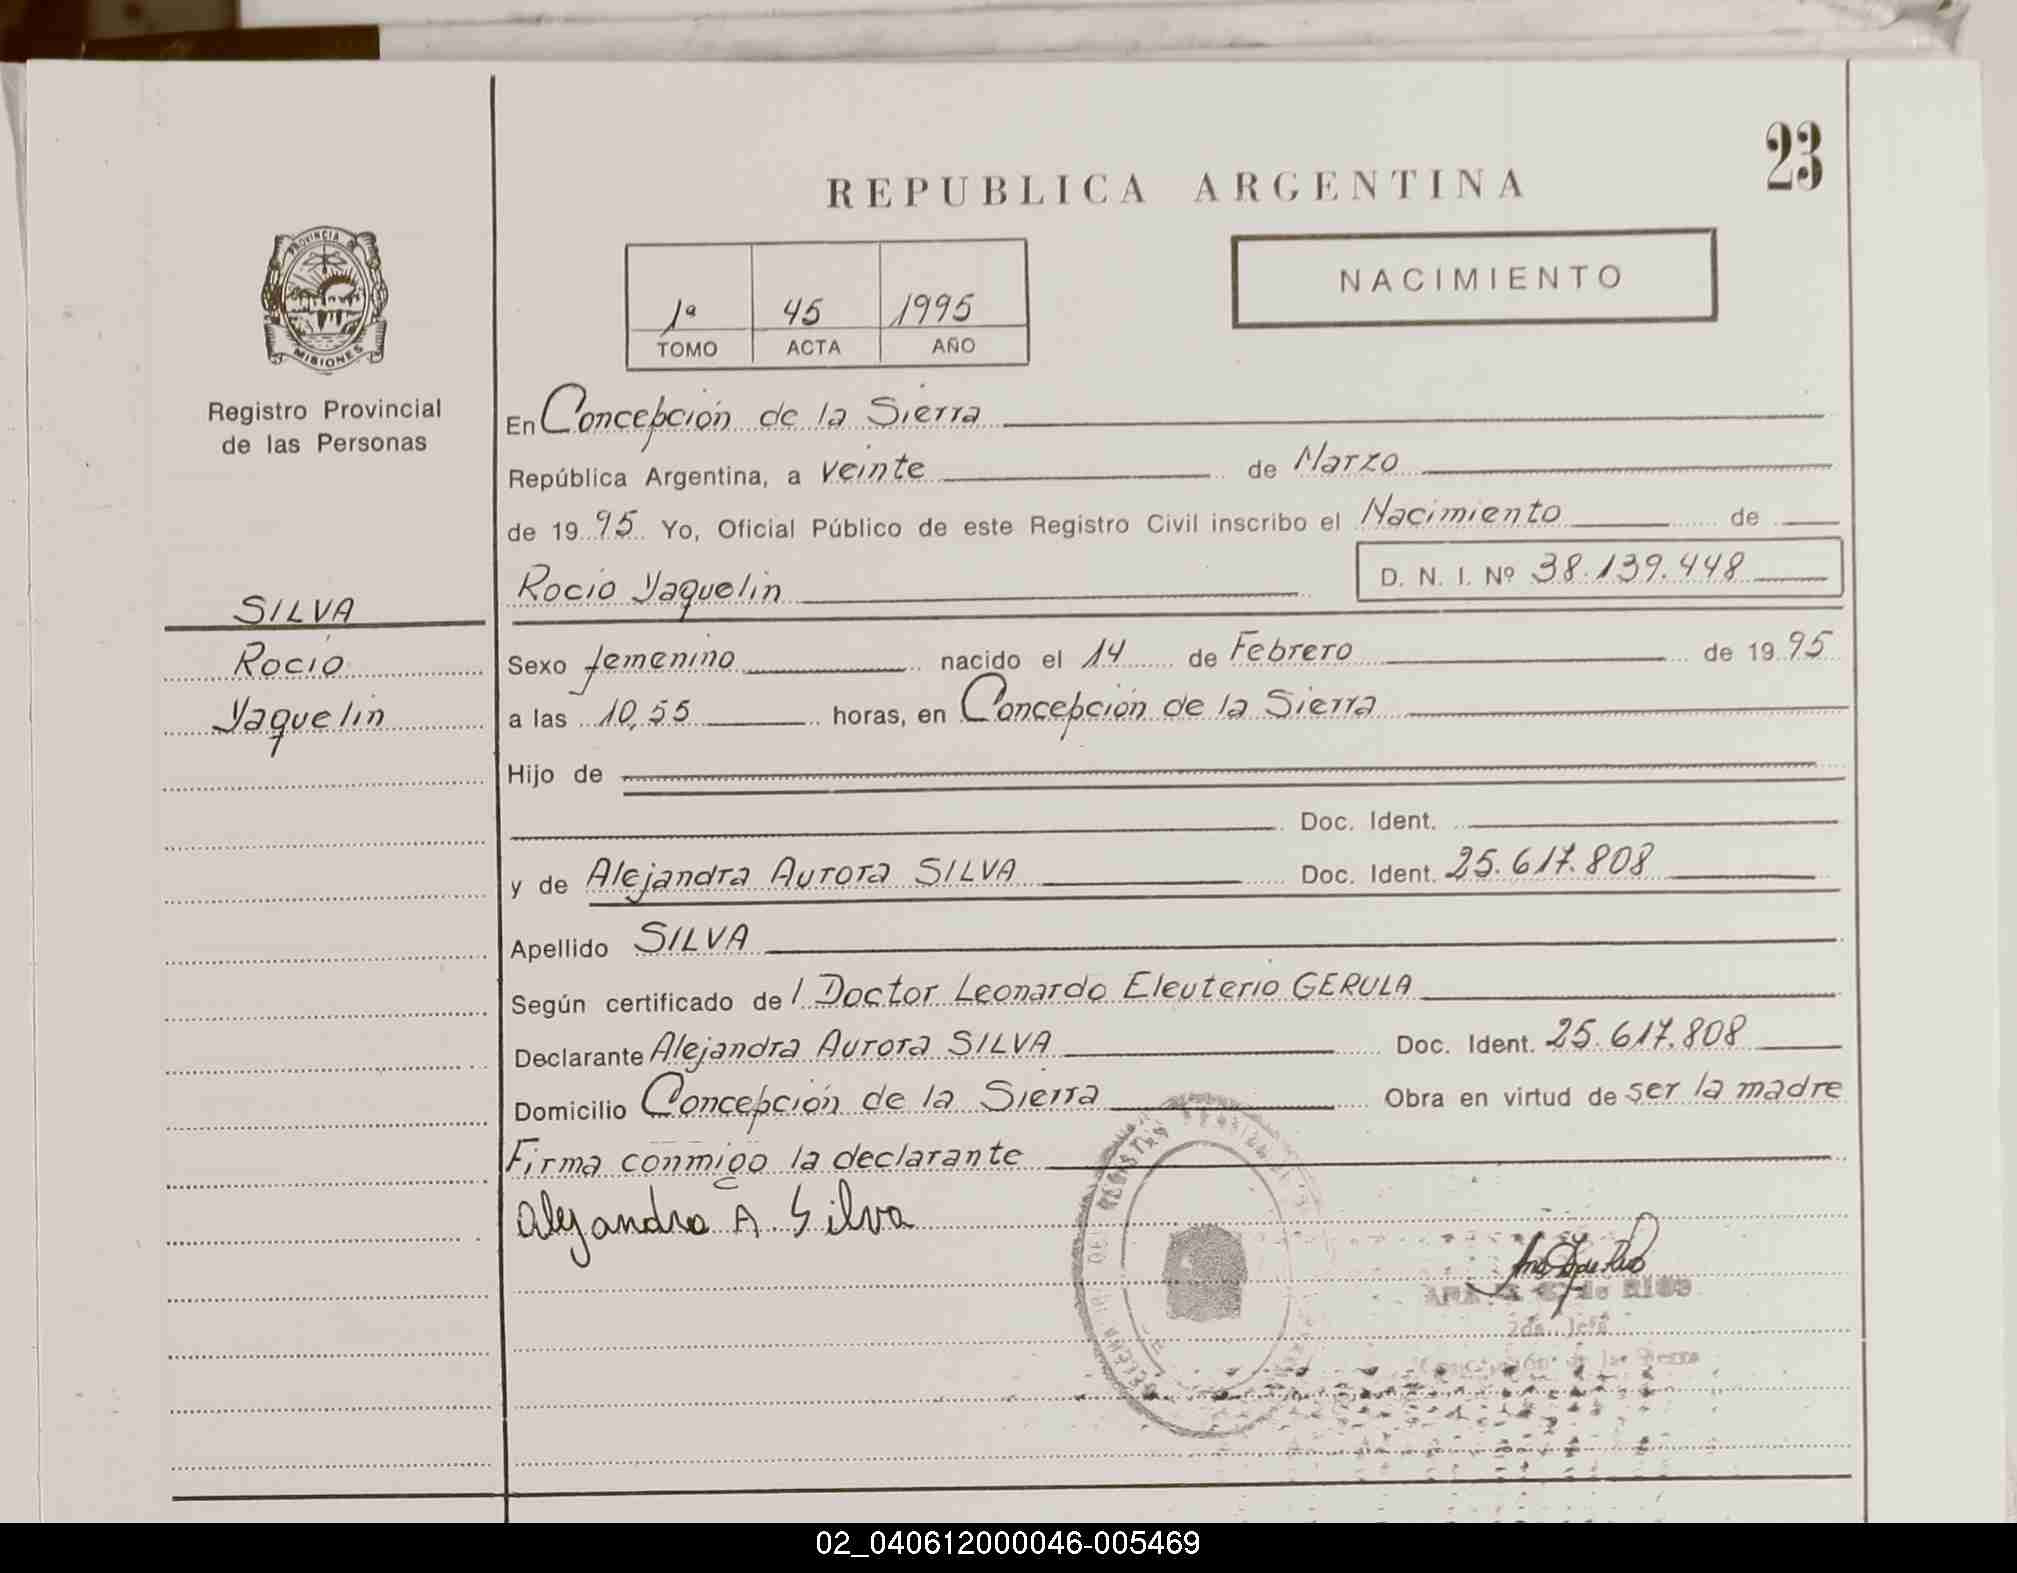 23
REPUBLICA ARGENTINA
NACIMIENTO
1ª 45 1995
TOMO ACTA AÑO
PROVINCIA DE
MISIONES
Registro Provincial
de las Personas
SILVA
Rocio
Yaquelin
En Concepción de la Sierra
República Argentina, a veinte de Marzo
de 1995 Yo, Oficial Público de este Registro Civil inscribo el Nacimiento de
Rocio Yaquelin D. N. I. Nº 38.139.448
Sexo femenino nacido el 14 de Febrero de 1995
a las 10,55 horas, en Concepción de la Sierra
Hijo de
Doc. Ident.
y de Alejandra Aurora SILVA Doc. Ident. 25.617.808
Apellido SILVA
Según certificado del Doctor Leonardo Eleuterio GERULA
Declarante Alejandra Aurora SILVA Doc. Ident. 25.617.808
Domicilio Concepción de la Sierra Obra en virtud de ser la madre
Firma conmigo la declarante
Alejandra A. Silva
de RIOS
2da. Jefa
Concepción de la Sierra
02_040612000046-005469